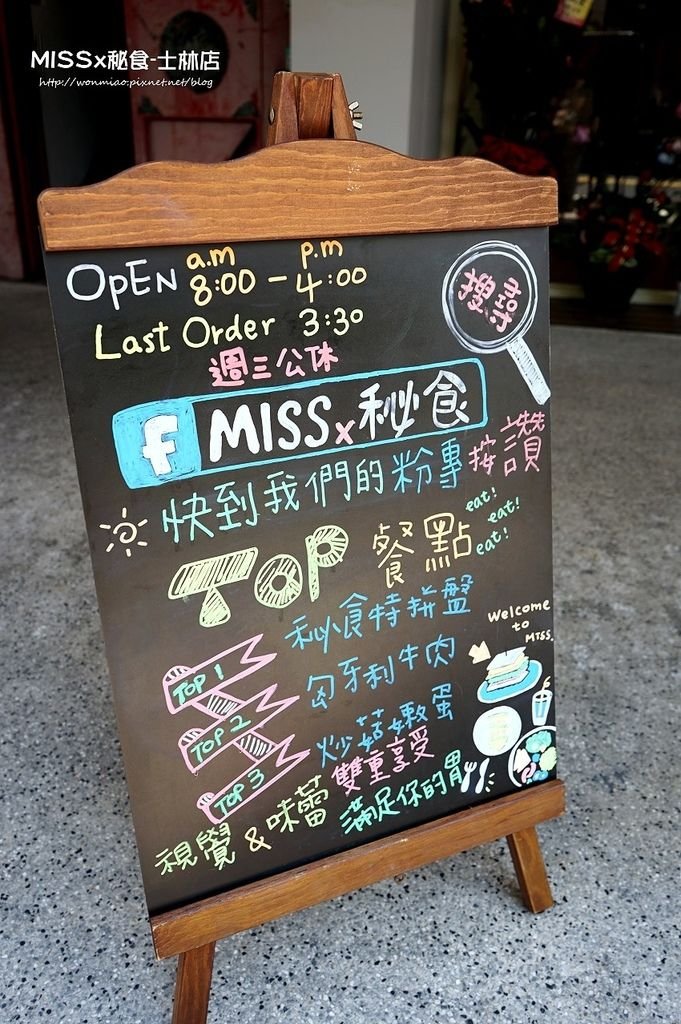 MISSx秘食-士林店
http://wonmiao.pixnet.net/blog
OPEN a.m 8:00 - p.m 4:00
搜尋
Last Order 3:30
週三公休
f MISSx秘食
快到我們的粉專按讚
TOP 餐點 eat! eat! eat!
TOP 1 秘食特拼盤
Welcome to MISS
TOP 2 匈牙利牛肉
TOP 3 炒菇嫩蛋
視覺&味蕾 雙重享受
滿足你的胃